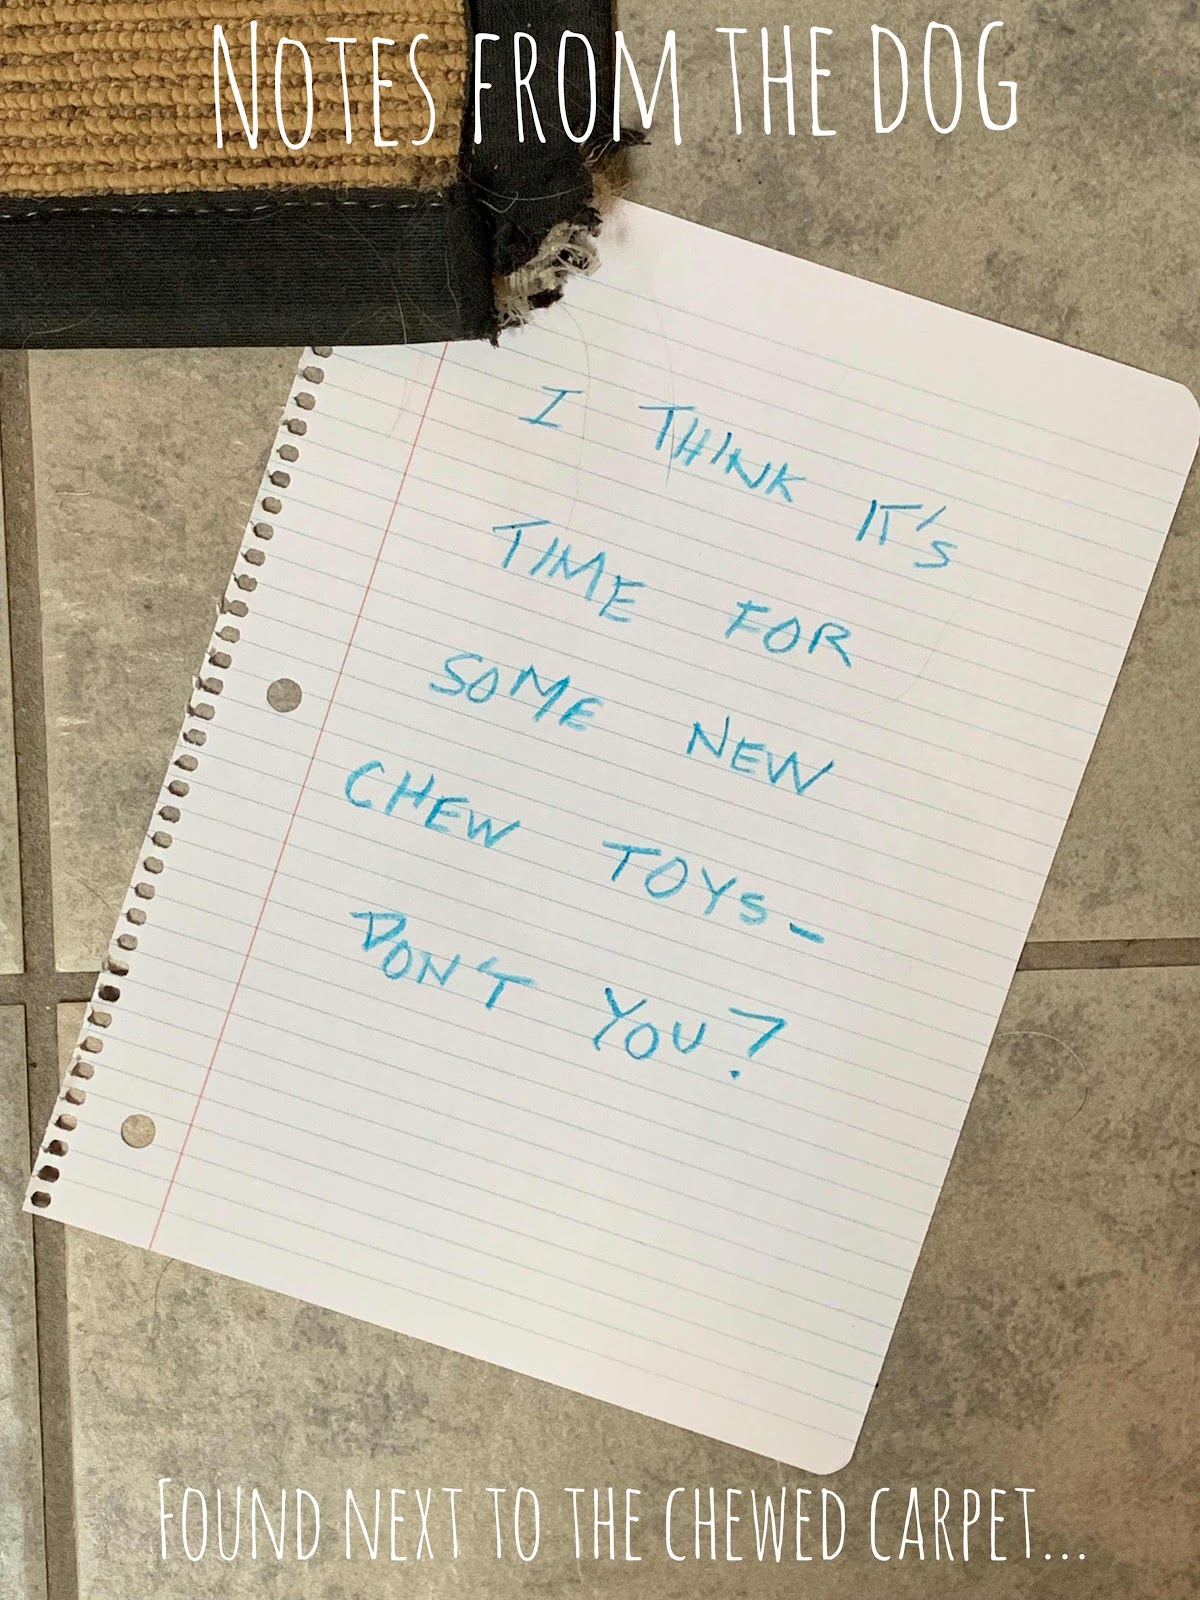 Notes from the dog
I THINK IT'S
TIME FOR
SOME NEW
CHEW TOYS-
DON'T YOU?
Found next to the chewed carpet...